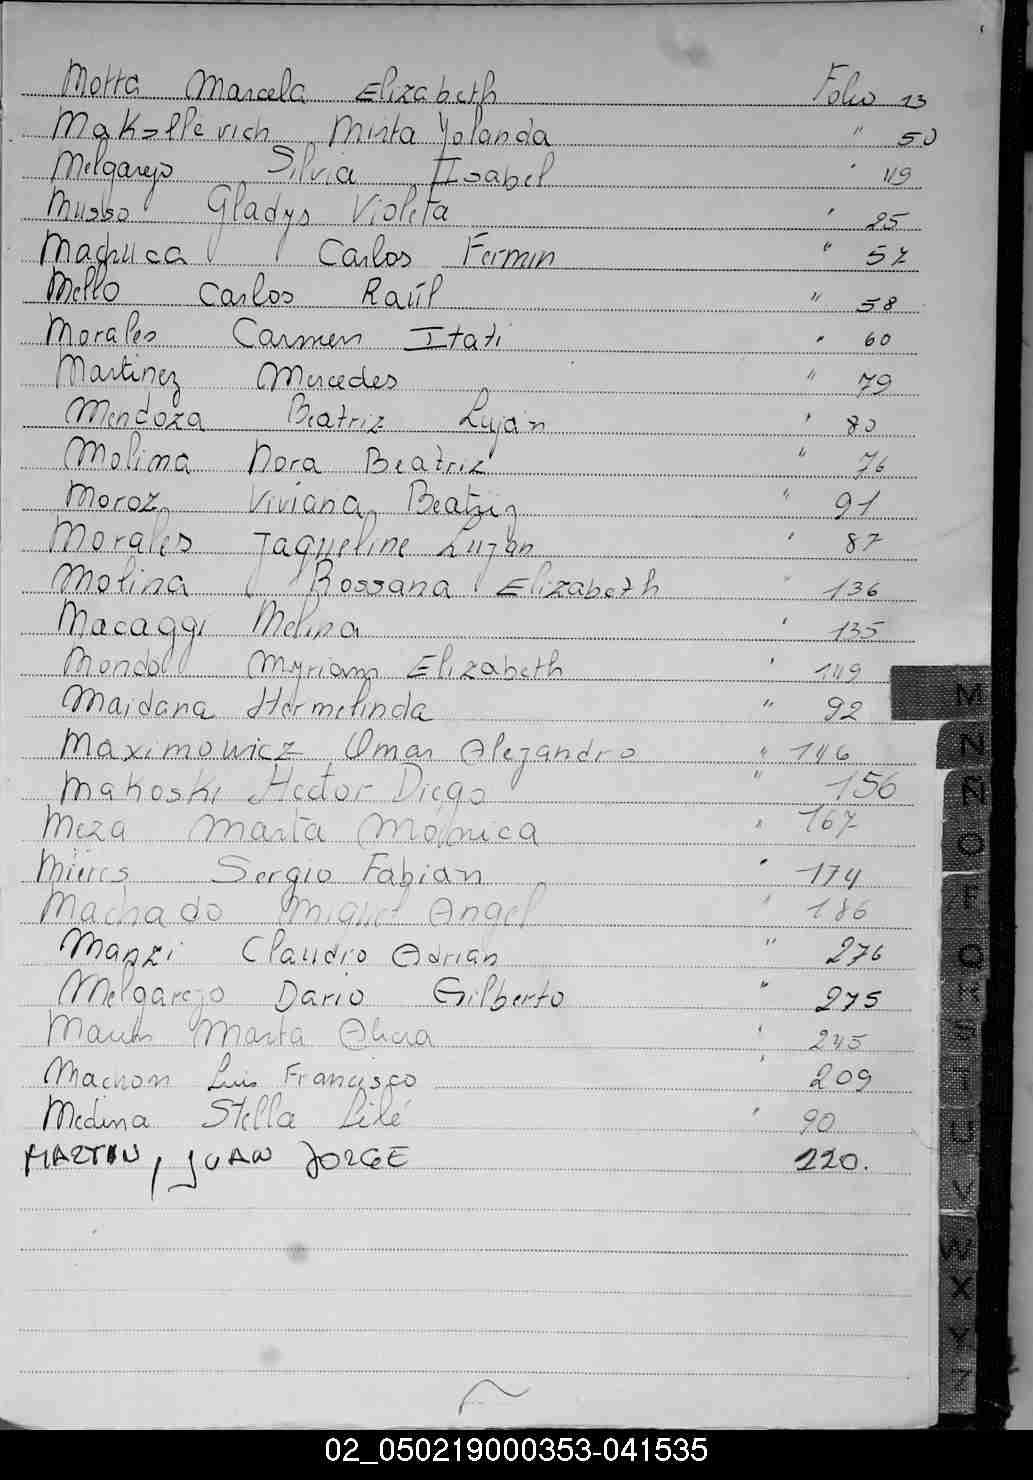 Motta Marcela Elizabeth Folio 13
Mirta Yolanda " 50
Melgarejo Silvia Isabel " 119
Musso Gladys Violeta " 25
Machuca Carlos Fermin " 57
Mello Carlos Raúl " 58
Morales Carmen Itati " 60
Martinez Mercedes " 79
Mendoza Beatriz Luján " 80
Molina Nora Beatriz " 76
Moroz Viviana Beatriz " 91
Morales Jaqueline Luján " 87
Molina Rossana Elizabeth " 136
Macaggi Melina " 135
Mondo Myriam Elizabeth " 149
Maidana Hermelinda " 92
Maximowicz Omar Alejandro " 146
Makoski Hector Diego " 156
Meza Marta Mónica " 167
Sergio Fabian " 174
Machado Miguel Angel " 186
Manzi Claudio Adrián " 276
Melgarejo Dario Gilberto " 275
Marta Alicia " 245
Luis Francisco " 209
Medina Stella Lilé " 90
MARTIN, JUAN JORGE 220.
M
N
Ñ
O
P
Q
R
S
T
U
V
W
X
Y
Z
02_050219000353-041535